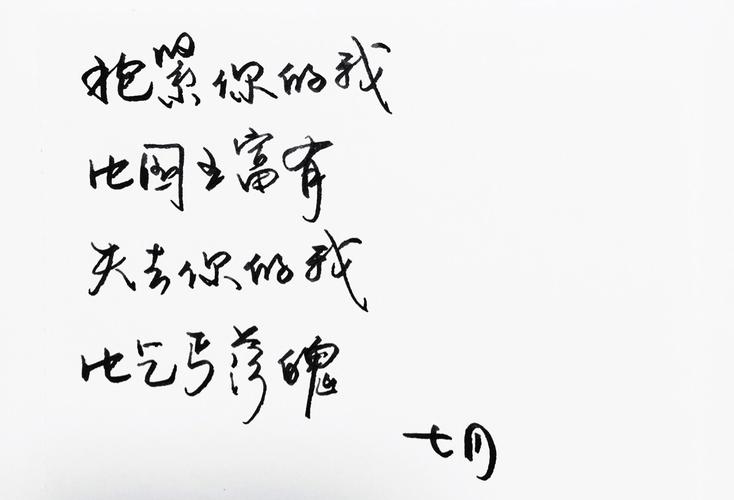 抱紧你的我
比国王富有
失去你的我
比乞丐落魄
七月